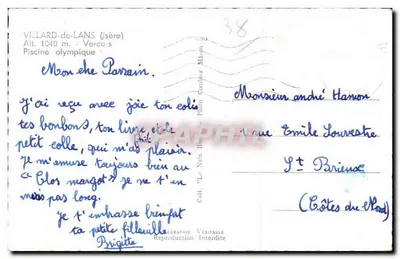 VILLARD-de-LANS (Isère)
Alt. 1040 m. - Vercors
Piscine olympique
38
Mon che Parrain.
J'ai reçu avec joie ton colis
tes bonbons, ton livre, et le
petit colle, qui m'as fait plaisir.
Je m'amuse toujours bien au
"Clos margot" je ne t'en
mets pas long.
Je t'embrasse bien fort
ta petite filleuille
Brigitte
Monsieur andré Hamon
rue Emile
St Brieuc
(Côtes du Nord)
VÉRITABLE
Reproduction Interdite